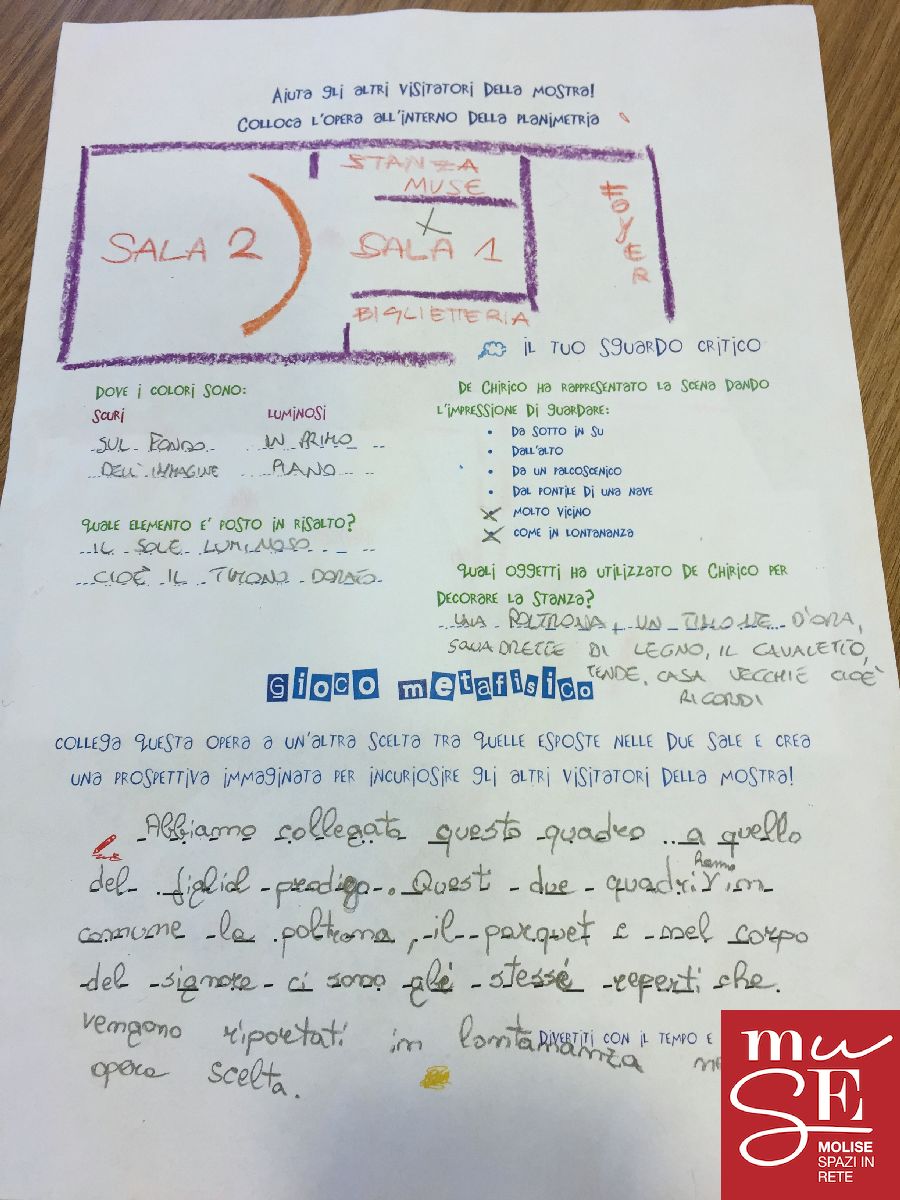 AIUTA GLI ALTRI VISITATORI DELLA MOSTRA!
COLLOCA L'OPERA ALL'INTERNO DELLA PLANIMETRIA
STANZA
MUSE
SALA 2
X
SALA 1
FOYER
BIGLIETTERIA
IL TUO SGUARDO CRITICO
DOVE I COLORI SONO:
SCURI LUMINOSI
SUL FONDO IN PRIMO
DELL'IMMAGINE PIANO
QUALE ELEMENTO E' POSTO IN RISALTO?
IL SOLE LUMINOSO
CIOÈ IL TIMONO DORATO
DE CHIRICO HA RAPPRESENTATO LA SCENA DANDO
L'IMPRESSIONE DI GUARDARE:
• DA SOTTO IN SU
• DALL'ALTO
• DA UN PALCOSCENICO
• DAL PONTILE DI UNA NAVE
X MOLTO VICINO
X COME IN LONTANANZA
QUALI OGGETTI HA UTILIZZATO DE CHIRICO PER
DECORARE LA STANZA?
UNA POLTRONA, UN TIMONE D'ORA,
SQUADRETTE DI LEGNO, IL CAVALETTO,
TENDE, CASA VECCHIE CIOÈ
RICORDI
GIOCO METAFISICO
COLLEGA QUESTA OPERA A UN'ALTRA SCELTA TRA QUELLE ESPOSTE NELLE DUE SALE E CREA
UNA PROSPETTIVA IMMAGINATA PER INCURIOSIRE GLI ALTRI VISITATORI DELLA MOSTRA!
Abbiamo collegato questo quadro a quello
del figliol prodigo. Questi due quadri hanno in
comune la poltrona, il parquet e nel corpo
del signore ci sono gli stessi reperti che
vengono riportati in lontananza
opera scelta.
DIVERTITI CON IL TEMPO E
muSE
MOLISE
SPAZI IN
RETE